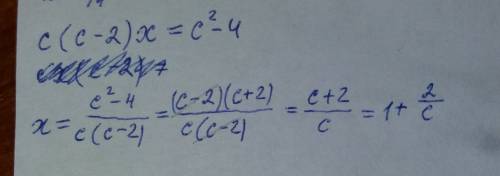 c(c-2)x = c²-4
x = \frac{c²-4}{c(c-2)} = \frac{(c-2)(c+2)}{c(c-2)} = \frac{c+2}{c} = 1+\frac{2}{c}